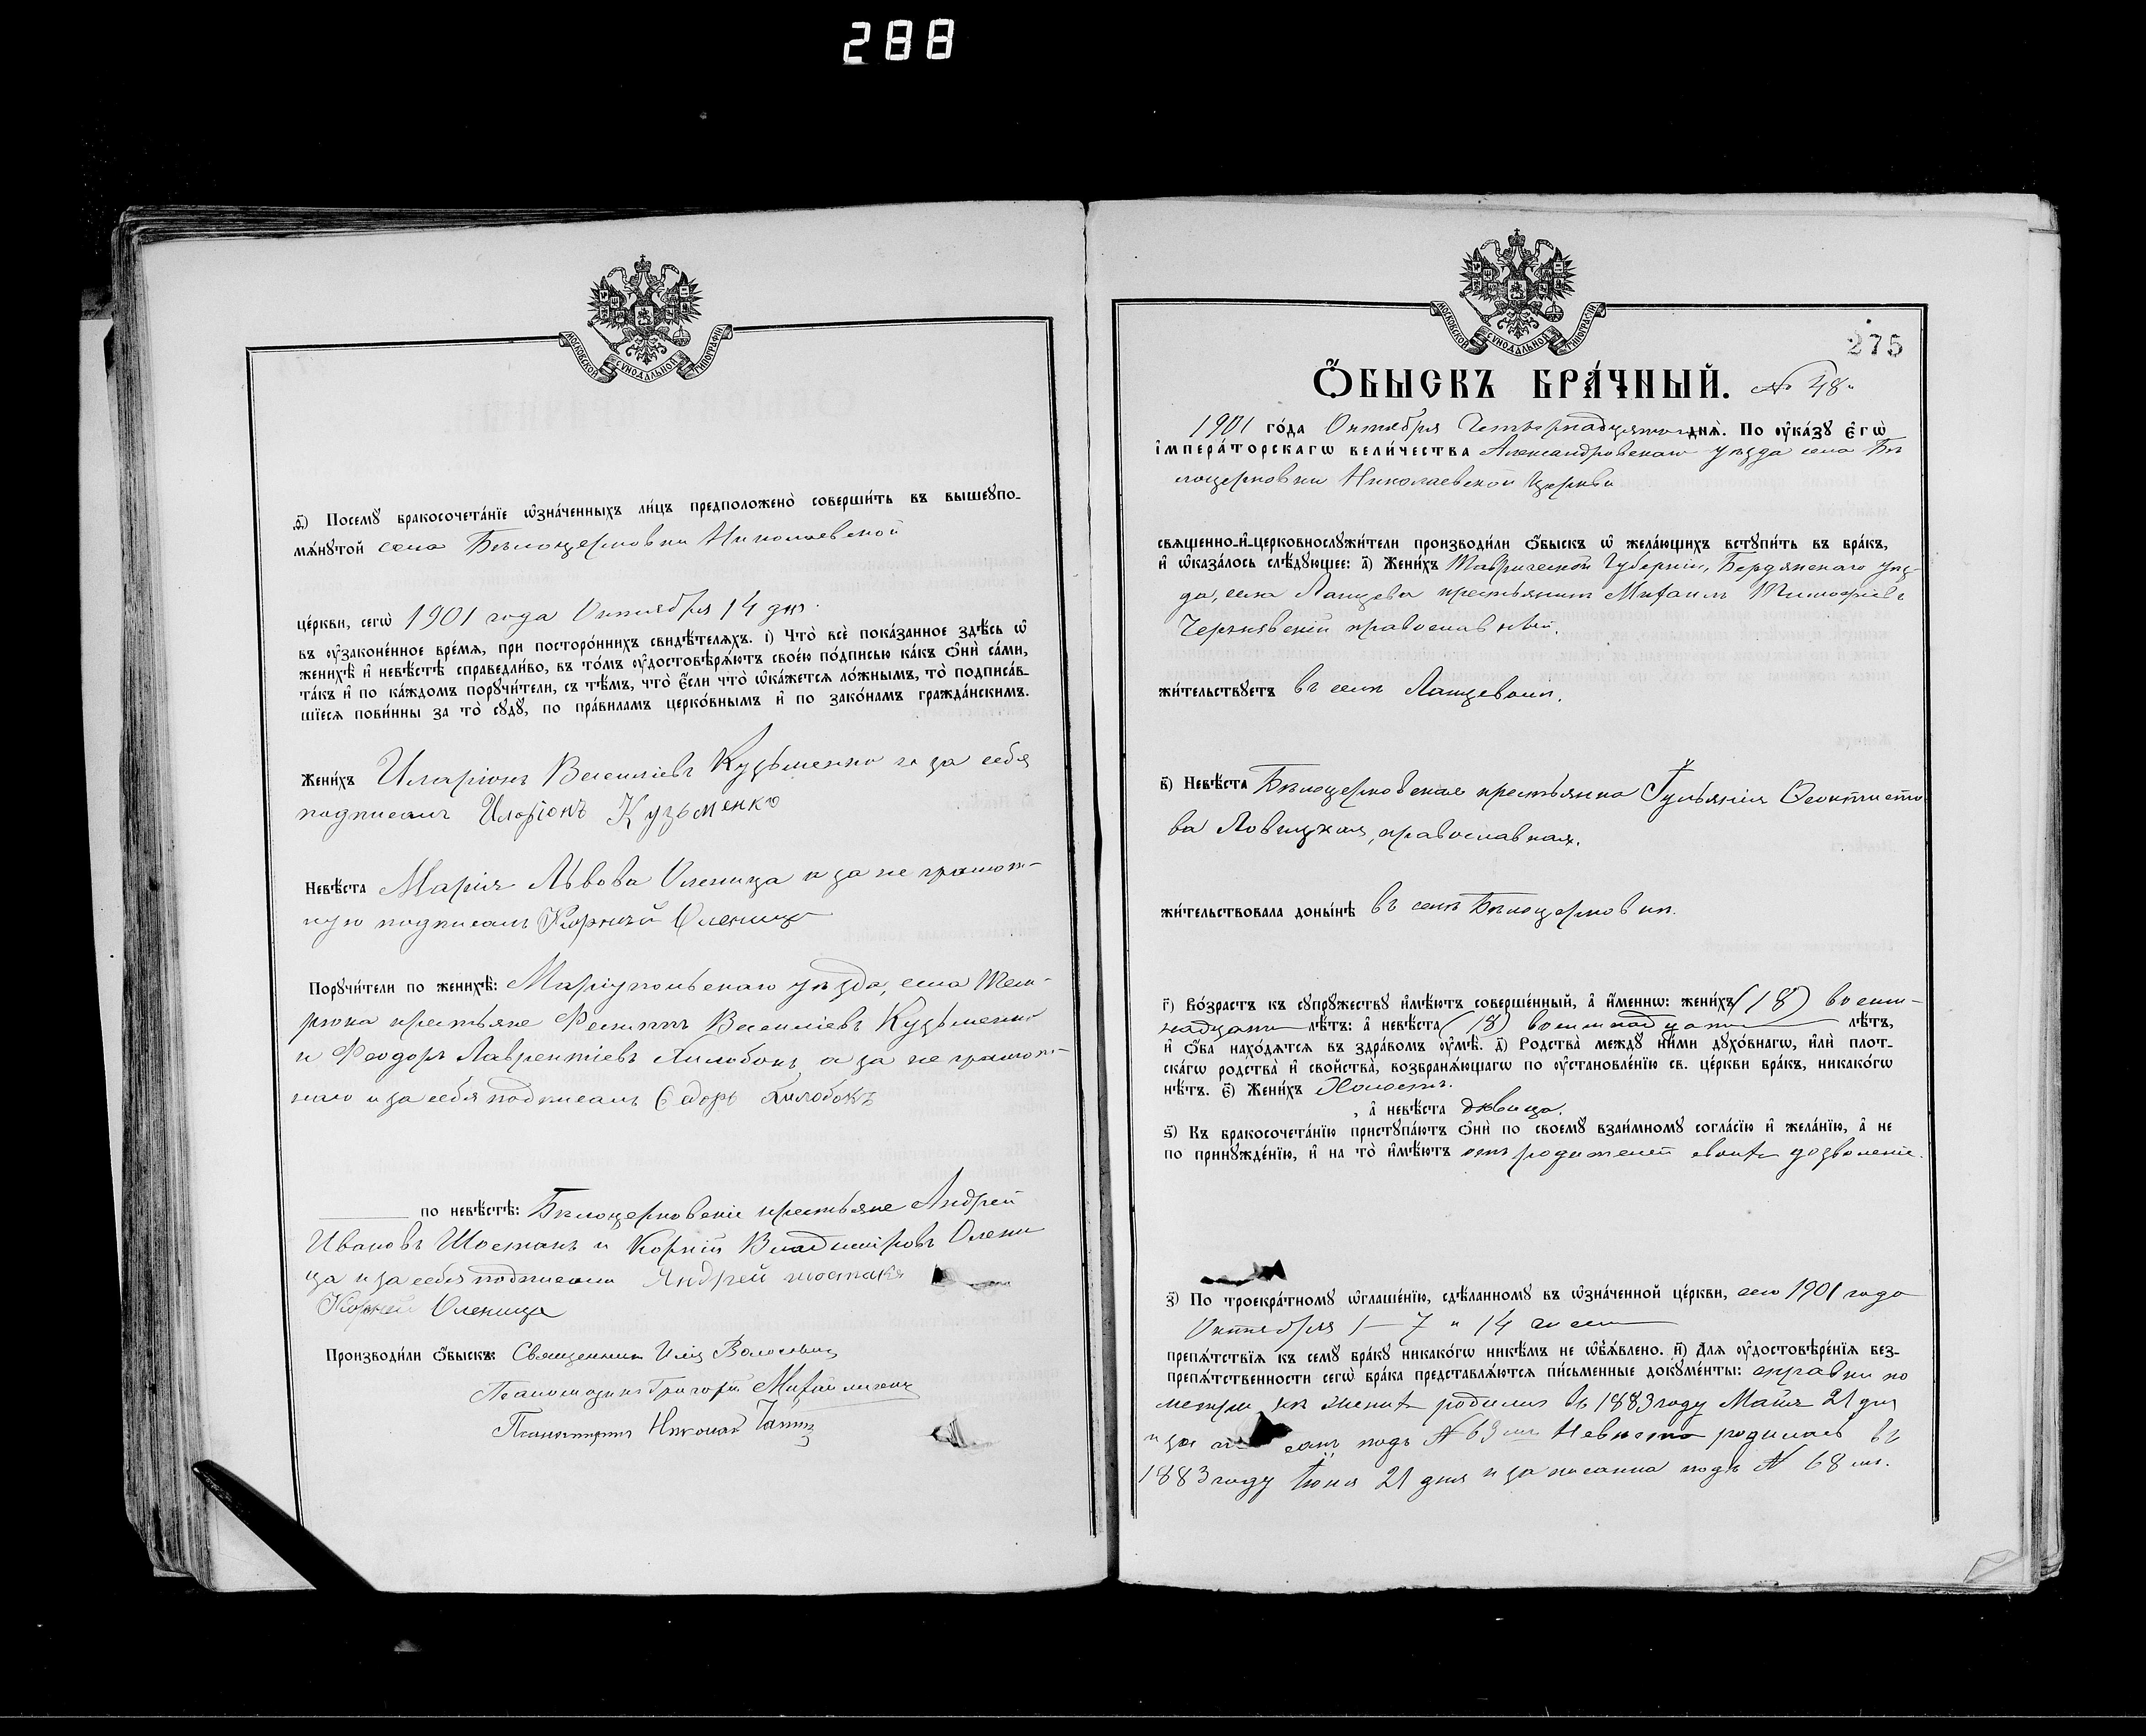 288
МОСКОВСКОЙ СѴНОДАЛЬНОЙ ТИПОГРАФІИ
ѳ҃) Посемꙋ бракосочета́нїе ѡ҆зна́ченныхъ ли́цъ предположено̀ соверши́ть въ вышеꙋпо-
мѧ́нꙋтой села Бѣлоцерковки Николаевской
це́ркви, сегѡ̀ 1901 года Октября 14 дня.
въ ᲂу҆зако́ненное вре́мѧ, при посторо́ннихъ свидѣ́телѧхъ. і҃) Что̀ всѐ пока́занное здѣ́сь ѡ҆
женихѣ̀ и҆ невѣ́стѣ справедли́во, въ то́мъ ᲂу҆достовѣрѧ́ютъ свое́ю по́дписью ка́къ ѻ҆нѝ са́ми,
та́къ и҆ по ка́ждомъ порꙋчи́тели, съ тѣ́мъ, что̀ є҆́сли что̀ ѡ҆ка́жетсѧ ло́жнымъ, то̀ подписа́в-
шїесѧ пови́нны за то̀ сꙋдꙋ̀, по пра́виламъ церко́внымъ и҆ по зако́намъ гражда́нскимъ.
Жени́хъ Иларіонъ Василіевъ Кузьменко и за себя
подписалъ Иларіонъ Кузьменко
Невѣ́ста Марія Львова Оленица а за не грамот-
ную подписалъ Корней Оленица
Порꙋчи́тели по женихѣ̀: Маріупольскаго уѣзда, села Тем-
рюка крестьяне Филиппъ Василіевъ Кузьменко
и Феодоръ Лаврентіевъ Билобокъ а за не грамот-
наго и за себя подписалъ Федоръ Билобокъ
по невѣ́стѣ: Бѣлоцерковскіе крестьяне Андрей
Ивановъ Шостакъ и Корній Владиміровъ Олени
ца и за себя подписали Андрей шостакъ
Корней Оленица
Производи́ли ѻ҆́быскъ: Священникъ Илія
Псаломщикъ Григорій
Псаломщикъ Николай
МОСКОВСКОЙ СѴНОДАЛЬНОЙ ТИПОГРАФІИ
275
Ѻ҆́БЫСКЪ БРА́ЧНЫЙ. № 48.
1901 го́да Октября Четырнадцатаго днѧ̀. По ᲂу҆ка́зꙋ є҆гѡ̀
і҆мпера́торскагѡ вели́чества Александровскаго уѣзда села Бѣ
лоцерковки Николаевской Церкви
свѧщенно-и҆-церковнослꙋжи́тели производи́ли ѻ҆́быскъ ѡ҆ жела́ющихъ встꙋпи́ть въ бра́къ,
и҆ ѡ҆каза́лось слѣ́дꙋющее: а҃) Жени́хъ Таврической Губерніи, Бердянскаго уѣз-
да, села Ланцева крестьянинъ Михаилъ Тимофіевъ
Чернявскій православный.
жи́тельствꙋетъ въ селѣ Ланцевомъ.
в҃) Невѣ́ста Бѣлоцерковская крестьянка Іульянія Феоктисто
ва Ловицкая, православная.
жи́тельствовала доны́нѣ въ селѣ Бѣлоцерковкѣ.
г҃) Во́зрастъ къ сꙋпрꙋ́жествꙋ и҆мѣ́ютъ соверше́нный, а҆ и҆́меннѡ: жени́хъ (18) восем-
надцати лѣ́тъ: а҆ невѣ́ста (18) восемнадцати лѣ́тъ,
и҆ ѻ҆́ба нахо́дѧтсѧ въ здра́вомъ ᲂу҆мѣ̀. д҃) Родства̀ междꙋ̀ ни́ми дꙋхо́внагѡ, и҆лѝ плот-
ска́гѡ родства̀ и҆ сво́йства, возбранѧ́ющагѡ по ᲂу҆становле́нїю св. це́ркви бра́къ, никако́гѡ
нѣ́тъ. є҃) Жени́хъ Холостъ.
, а҆ невѣ́ста дѣвица.
ѕ҃) Къ бракосочета́нїю пристꙋпа́ютъ ѻ҆нѝ по своемꙋ̀ взаи́мномꙋ согла́сїю и҆ жела́нїю, а҆ не
по принꙋжде́нїю, и҆ на то̀ и҆мѣ́ютъ отъ родителей своихъ дозволеніе.
з҃) По троекра́тномꙋ ѡ҆глаше́нїю, сдѣ́ланномꙋ въ ѡ҆зна́ченной це́ркви, сего 1901 года
Октября 1 – 7 и 14 чиселъ
препѧ́тствїѧ къ семꙋ̀ бра́кꙋ никако́гѡ никѣ́мъ не ѡ҆б̾ѧ́влено. и҃) Длѧ ᲂу҆достовѣре́нїѧ без-
препѧ́тственности сегѡ̀ бра́ка представлѧ́ютсѧ пи́сьменные докꙋме́нты: справки по
метри кѣ женихъ родился въ 1883 году Маія 21 дня
и за санъ подъ № 63 мъ Невѣста родилась въ
1883 году Іюня 21 дня и записанна подъ № 68 мъ.